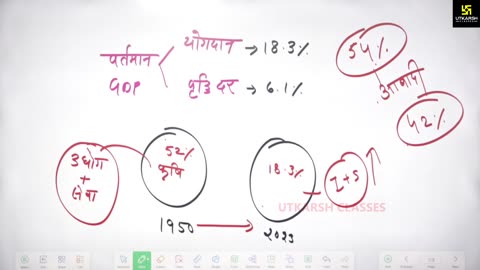 UTKARSH
CLASSES
योगदान → 18.3%
वर्तमान
GDP
वृद्धि दर → 6.1%
54%
आबादी
42%
उद्योग
+
सेवा
52%
कृषि
18.3%
I+S
UTKARSH CLASSES
1950
2023